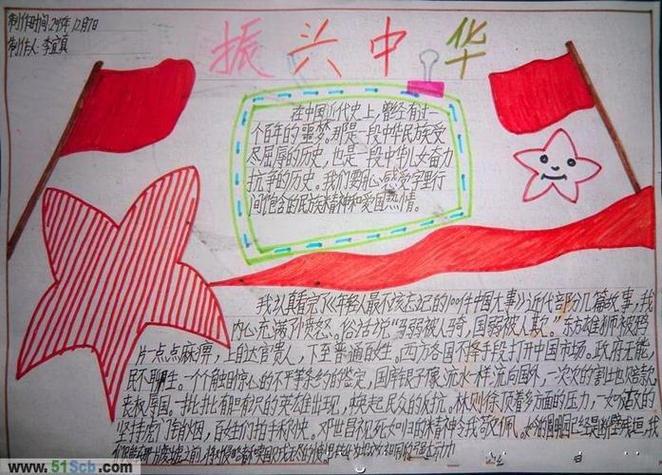 制作时间:
制作人:李宜真
振兴中华
在中国近代史上,曾经有过一
个百年的噩梦。那是一段中华民族受
尽屈辱的历史,也是一段中华儿女奋力
抗争的历史。我们要用心感受字里行
间饱含的民族精神和爱国热情。
我认真看完了《年轻人最不该忘记的100件中国大事》近代部分几篇故事,我
内心充满了愤怒。俗话说“马弱被人骑,国弱被人欺。”东方雄师被鸦
片一点点麻痹,上的达官贵人,下至普通百姓。西方各国不择手段打开中国市场。政府无能,
民不聊生。一个个触目惊心的不平等条约的签定,国库银子像流水一样流向国外,一次次的割让和赔款,
丧权辱国。一批批有胆有识的英雄出现,唤起民众的反抗。林则徐顶着多方面的压力,一如既往的
坚持虎门销烟,百姓们拍手称快。邓世昌视死如归的精神令我敬佩。
www.51Scb.com